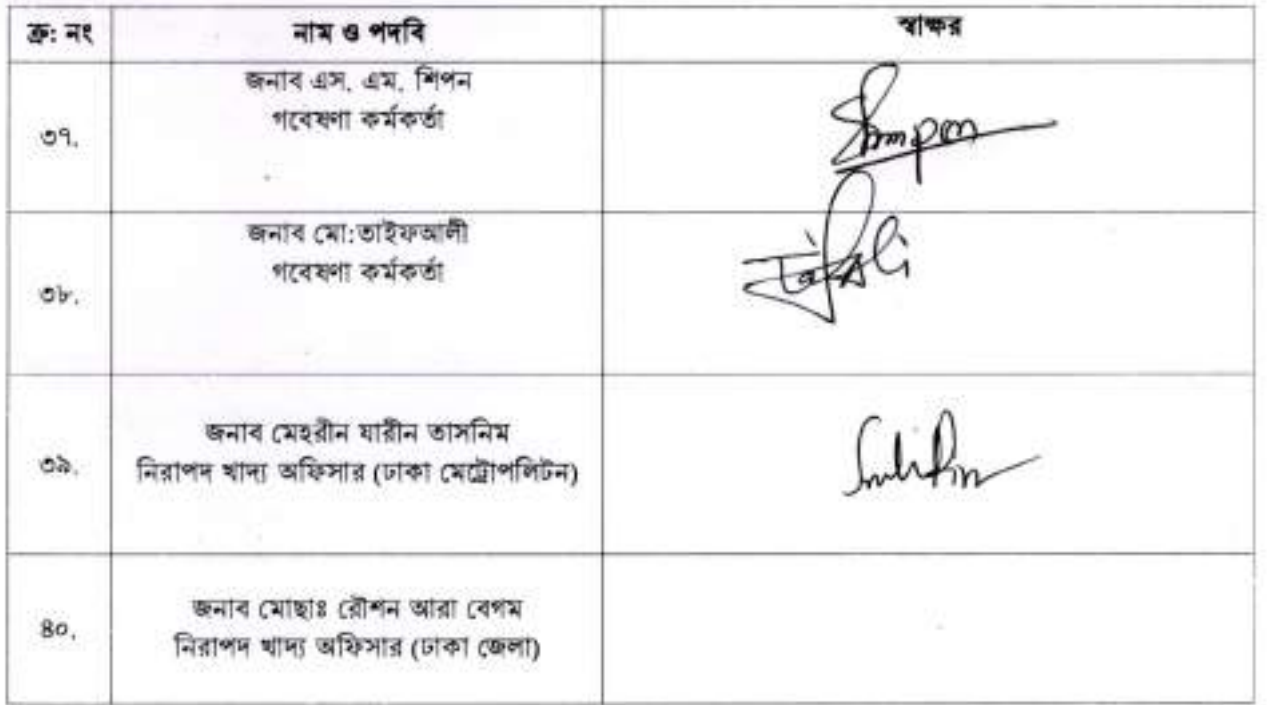 ক্র: নং নাম ও পদবি স্বাক্ষর
৩৭. জনাব এস. এম. শিপন
গবেষণা কর্মকর্তা
Shimpon
৩৮. জনাব মো:তাইফআলী
গবেষণা কর্মকর্তা
৩৯. জনাব মেহরীন যারীন তাসনিম
নিরাপদ খাদ্য অফিসার (ঢাকা মেট্রোপলিটন)
৪০. জনাব মোছাঃ রৌশন আরা বেগম
নিরাপদ খাদ্য অফিসার (ঢাকা জেলা)